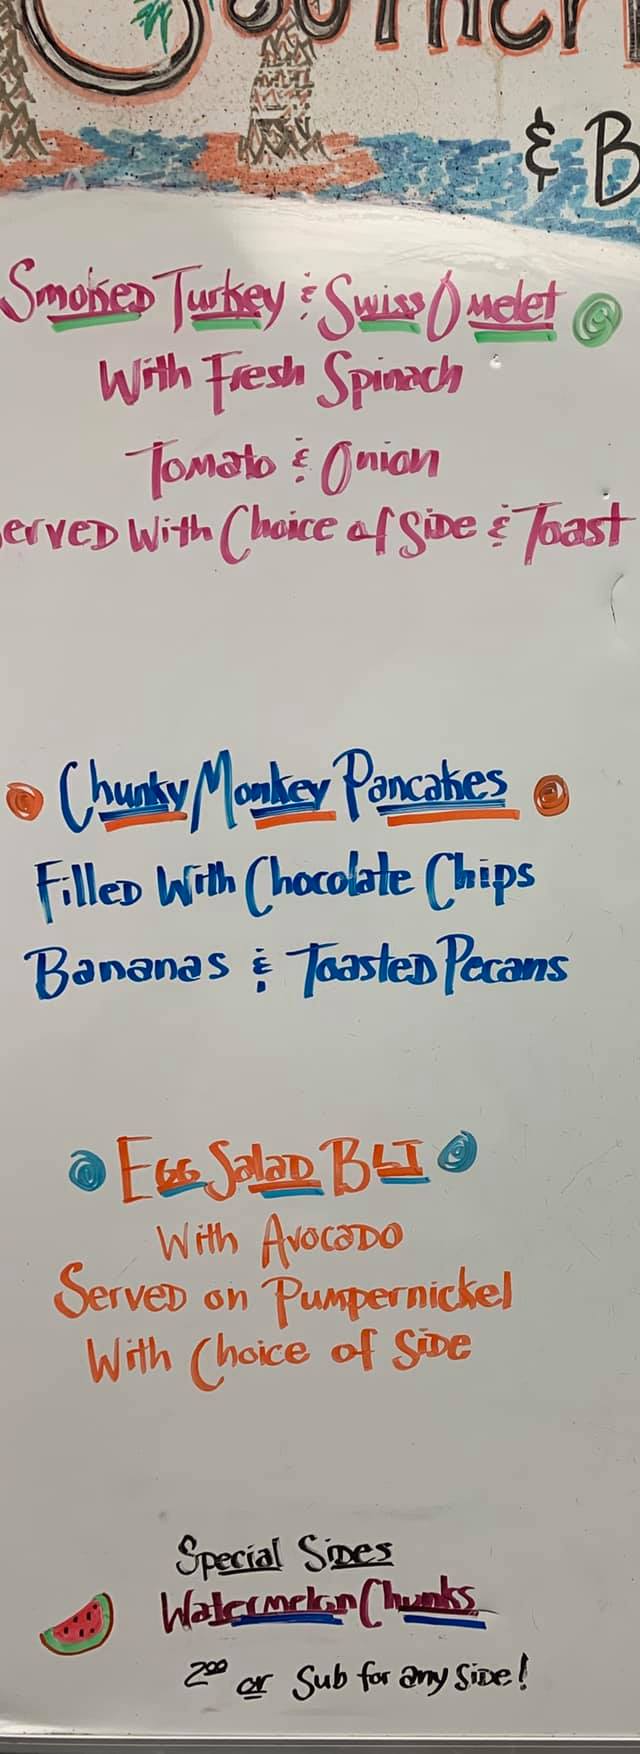 Southern
& B
Smoked Turkey & Swiss Omelet
With Fresh Spinach
Tomato & Onion
erved With Choice of Side & Toast
Chunky Monkey Pancakes
Filled With Chocolate Chips
Bananas & Toasted Pecans
Egg Salad BLT
With Avocado
Served on Pumpernickel
With Choice of Side
Special Sides
Watermelon Chunks
200 or Sub for any Side!